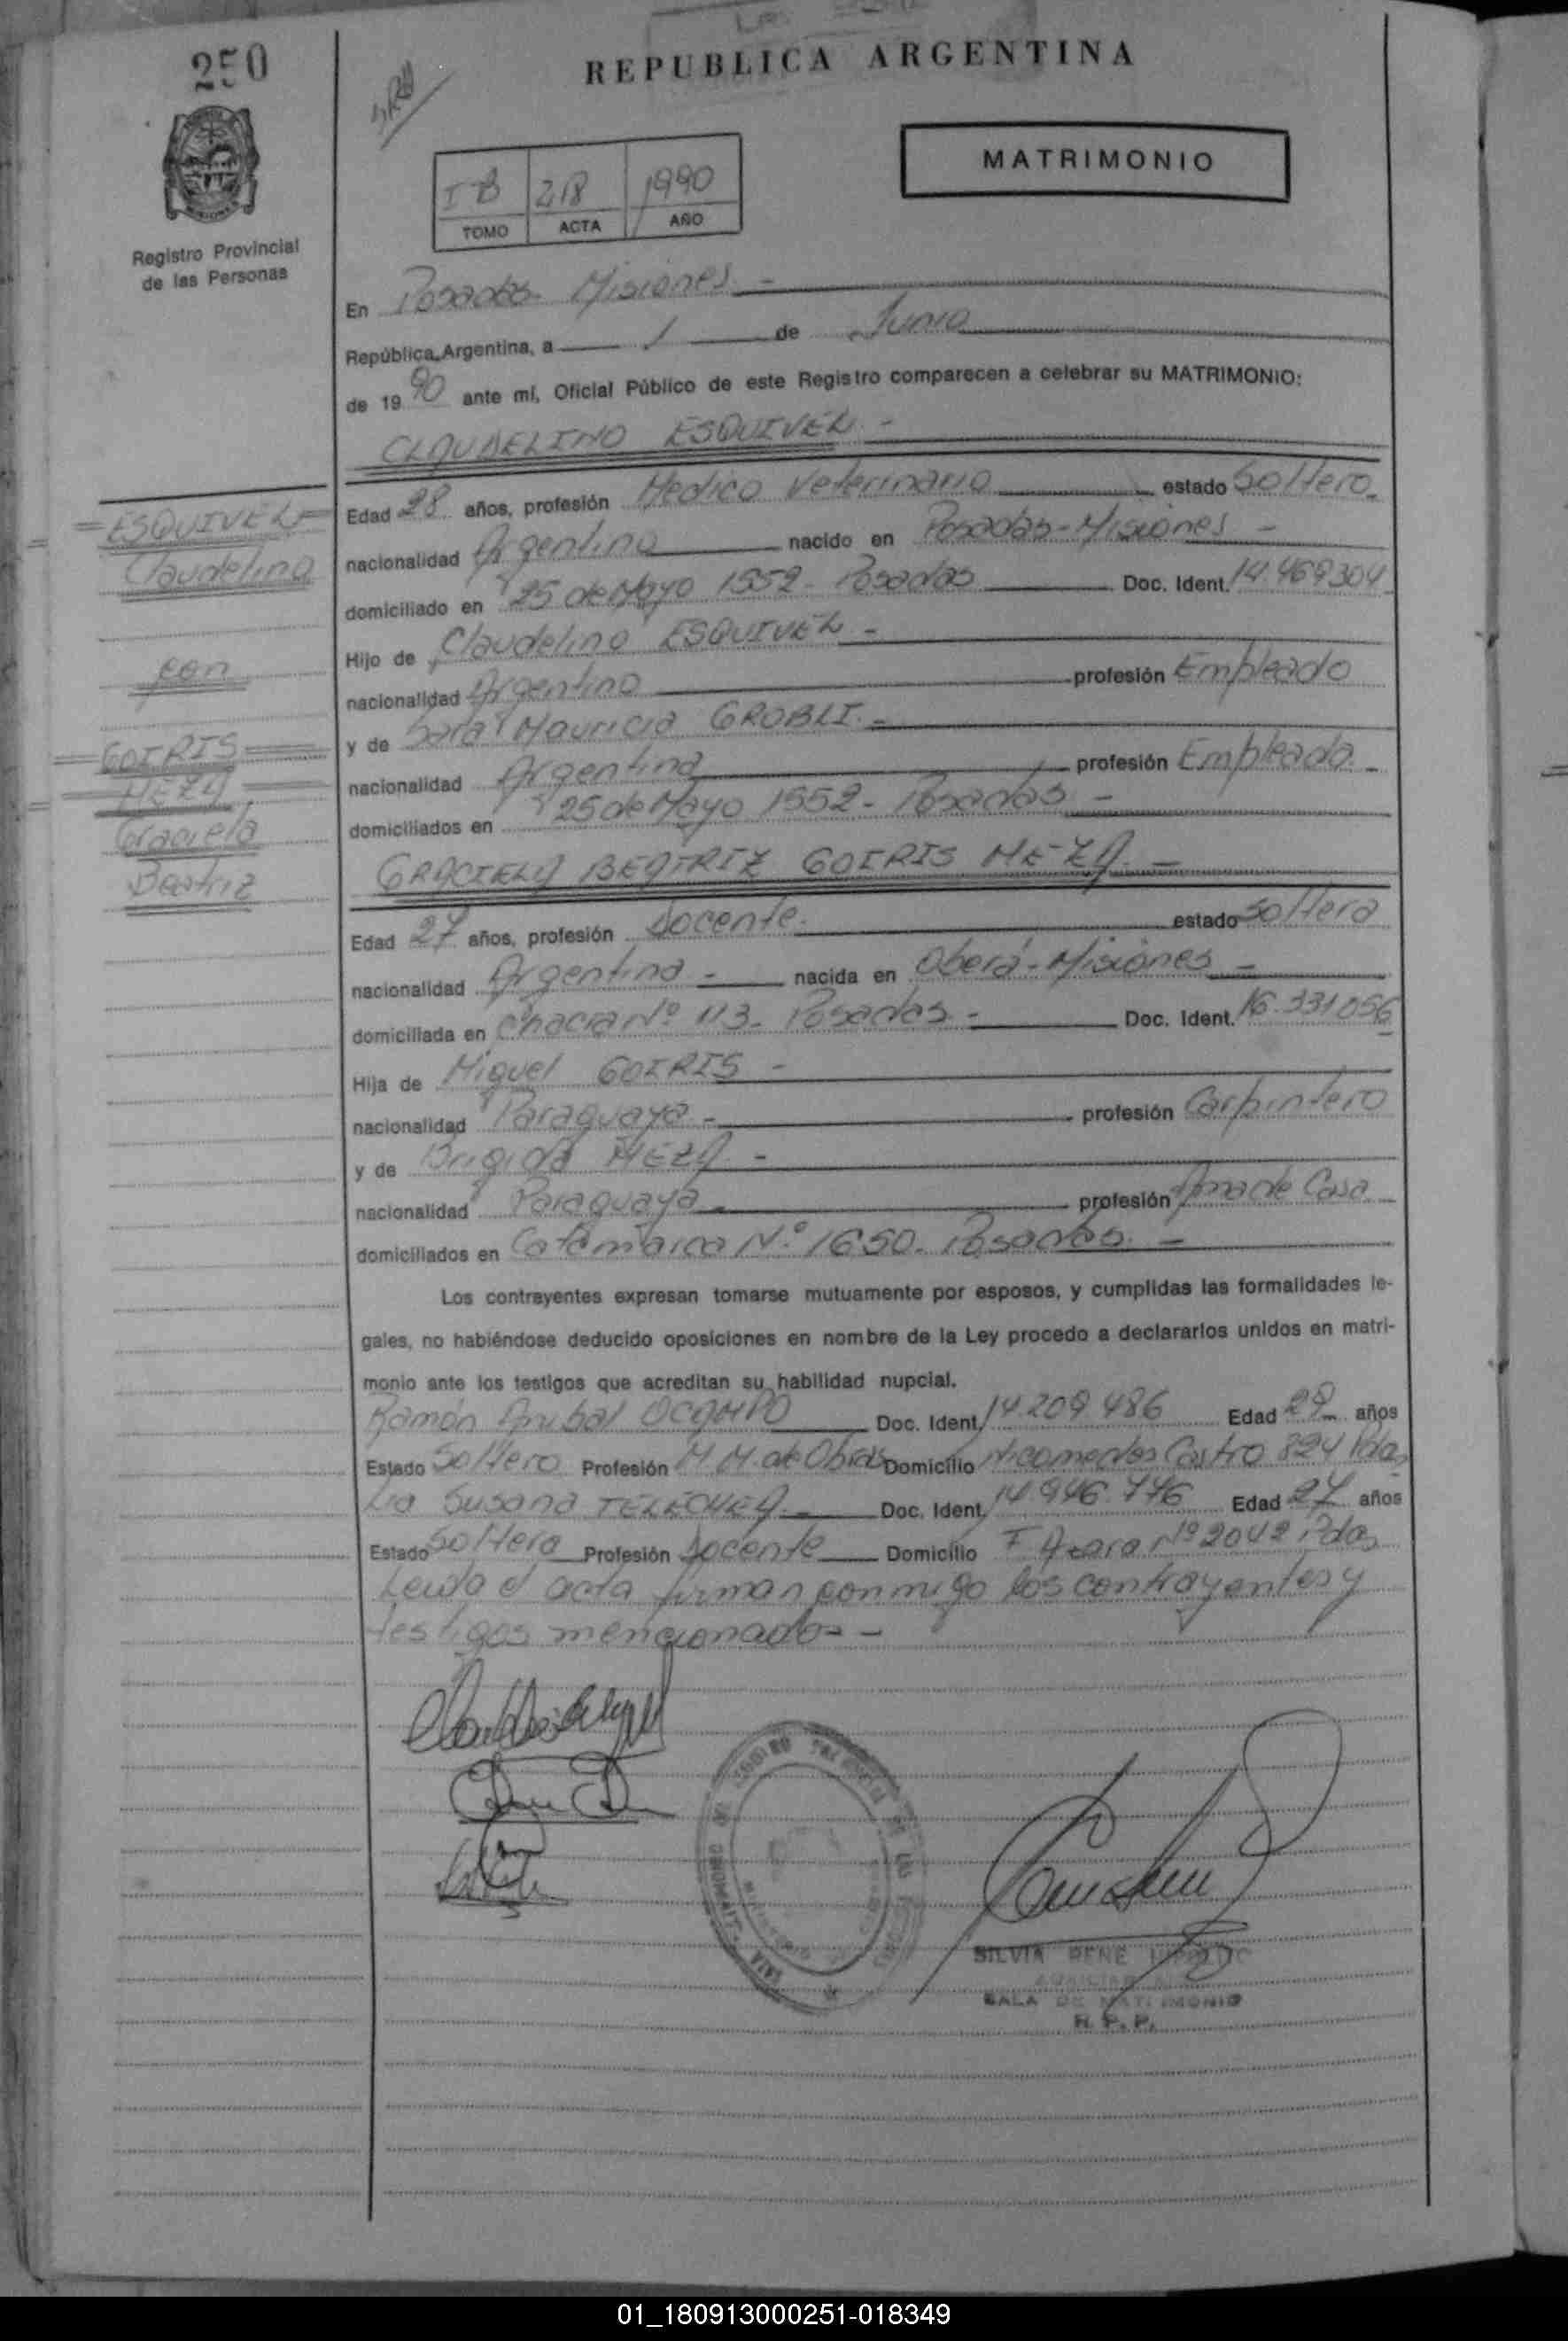 250
REPUBLICA ARGENTINA
MATRIMONIO
Registro Provincial
de las Personas
I B 218 1990
TOMO ACTA AÑO
En Posadas - Misiones -
República Argentina, a 1 de Junio
de 1990 ante mí, Oficial Público de este Registro comparecen a celebrar su MATRIMONIO:
CLAUDELINO ESQUIVEL -
Edad 28 años, profesión Medico Veterinario estado Soltero.
nacionalidad Argentina nacido en Posadas - Misiones -
domiciliado en 25 de Mayo 1552 - Posadas Doc. Ident. 14.469304
Hijo de Claudelino ESQUIVEL -
nacionalidad Argentina profesión Empleado
y de Sara Mauricia GROBLI. -
nacionalidad Argentina profesión Empleada. -
domiciliados en 25 de Mayo 1552 - Posadas -
ESQUIVEL
Claudelino
con
GOIRIS
MEZA
Graciela
Beatriz
GRACIELA BEATRIZ GOIRIS MEZA. -
Edad 27 años, profesión Docente. estado Soltera
nacionalidad Argentina - nacida en Oberá - Misiones -
domiciliada en Chacra Nº 113 - Posadas - Doc. Ident. 16.331056
Hija de Miguel GOIRIS -
nacionalidad Paraguaya - profesión Carpintero
y de Brigida MEZA -
nacionalidad Paraguaya - profesión Ama de Casa
domiciliados en Catamarca Nº 1650 - Posadas. -
Los contrayentes expresan tomarse mutuamente por esposos, y cumplidas las formalidades le-
gales, no habiéndose deducido oposiciones en nombre de la Ley procedo a declararlos unidos en matri-
monio ante los testigos que acreditan su habilidad nupcial.
Ramón Anibal OCAMPO Doc. Ident. 14.209.486 Edad 29 años
Estado Soltero Profesión M.M. de Obras Domicilio Nicomedes Castro 824 Pdas
Lia Susana TELECHEA - Doc. Ident. 14.946.776 Edad 27 años
Estado Soltera Profesión Docente Domicilio F Azara Nº 2042 Pdas
Leida el acta firman conmigo los contrayentes y
testigos mencionados -
SILVIA RENE
SALA DE MATRIMONIO
R. P. P.
01_180913000251-018349